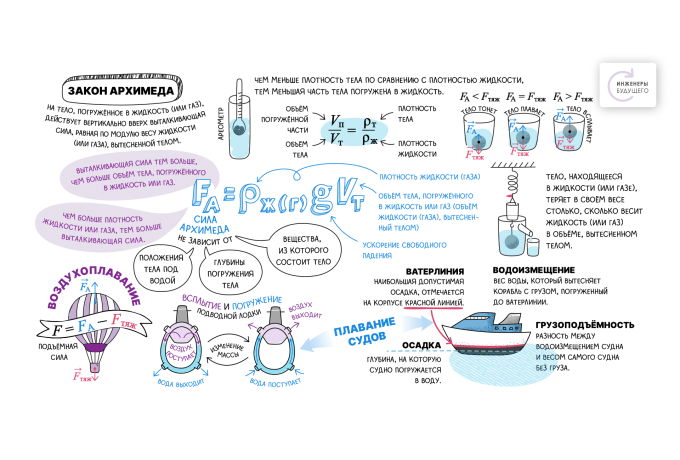 ЗАКОН АРХИМЕДА
НА ТЕЛО, ПОГРУЖЁННОЕ В ЖИДКОСТЬ (ИЛИ ГАЗ),
ДЕЙСТВУЕТ ВЕРТИКАЛЬНО ВВЕРХ ВЫТАЛКИВАЮЩАЯ
СИЛА, РАВНАЯ ПО МОДУЛЮ ВЕСУ ЖИДКОСТИ
(ИЛИ ГАЗА), ВЫТЕСНЕННОЙ ТЕЛОМ.
АРЕОМЕТР
ЧЕМ МЕНЬШЕ ПЛОТНОСТЬ ТЕЛА ПО СРАВНЕНИЮ С ПЛОТНОСТЬЮ ЖИДКОСТИ,
ТЕМ МЕНЬШАЯ ЧАСТЬ ТЕЛА ПОГРУЖЕНА В ЖИДКОСТЬ.
ИНЖЕНЕРЫ
БУДУЩЕГО
ОБЪЁМ
ПОГРУЖЁННОЙ
ЧАСТИ
ОБЪЁМ
ТЕЛА
Vп/Vт = ρт/ρж
ПЛОТНОСТЬ
ТЕЛА
ПЛОТНОСТЬ
ЖИДКОСТИ
FА < Fтяж FА = Fтяж FА > Fтяж
ТЕЛО ТОНЕТ ТЕЛО ПЛАВАЕТ ТЕЛО ВСПЛЫВАЕТ
FА FА FА
Fтяж Fтяж Fтяж
ВЫТАЛКИВАЮЩАЯ СИЛА ТЕМ БОЛЬШЕ,
ЧЕМ БОЛЬШЕ ОБЪЁМ ТЕЛА, ПОГРУЖЁННОГО
В ЖИДКОСТЬ ИЛИ ГАЗ.
ЧЕМ БОЛЬШЕ ПЛОТНОСТЬ
ЖИДКОСТИ ИЛИ ГАЗА, ТЕМ БОЛЬШЕ
ВЫТАЛКИВАЮЩАЯ СИЛА.
FА = ρж(г) g Vт
СИЛА
АРХИМЕДА
ПЛОТНОСТЬ ЖИДКОСТИ (ГАЗА)
ОБЪЁМ ТЕЛА, ПОГРУЖЁННОГО
В ЖИДКОСТЬ ИЛИ ГАЗ (ОБЪЁМ
ЖИДКОСТИ (ГАЗА), ВЫТЕСНЕН-
НЫЙ ТЕЛОМ)
УСКОРЕНИЕ СВОБОДНОГО
ПАДЕНИЯ
ТЕЛО, НАХОДЯЩЕЕСЯ
В ЖИДКОСТИ (ИЛИ ГАЗЕ),
ТЕРЯЕТ В СВОЁМ ВЕСЕ
СТОЛЬКО, СКОЛЬКО ВЕСИТ
ЖИДКОСТЬ (ИЛИ ГАЗ)
В ОБЪЁМЕ, ВЫТЕСНЕННОМ
ТЕЛОМ.
НЕ ЗАВИСИТ ОТ
ПОЛОЖЕНИЯ
ТЕЛА ПОД
ВОДОЙ
ГЛУБИНЫ
ПОГРУЖЕНИЯ
ТЕЛА
ВЕЩЕСТВА,
ИЗ КОТОРОГО
СОСТОИТ ТЕЛО
ВОЗДУХОПЛАВАНИЕ
FА
F = FА − Fтяж
ПОДЪЁМНАЯ
СИЛА
Fтяж
ВСПЛЫТИЕ И ПОГРУЖЕНИЕ
ПОДВОДНОЙ ЛОДКИ
ВОЗДУХ
ПОСТУПАЕТ
ИЗМЕНЕНИЕ
МАССЫ
ВОЗДУХ
ВЫХОДИТ
ВОДА ВЫХОДИТ
ВОДА ПОСТУПАЕТ
ПЛАВАНИЕ
СУДОВ
ВАТЕРЛИНИЯ
НАИБОЛЬШАЯ ДОПУСТИМАЯ
ОСАДКА, ОТМЕЧАЕТСЯ
НА КОРПУСЕ КРАСНОЙ ЛИНИЕЙ.
ОСАДКА
ГЛУБИНА, НА КОТОРУЮ
СУДНО ПОГРУЖАЕТСЯ
В ВОДУ.
ВОДОИЗМЕЩЕНИЕ
ВЕС ВОДЫ, КОТОРЫЙ ВЫТЕСНЯЕТ
КОРАБЛЬ С ГРУЗОМ, ПОГРУЖЕННЫЙ
ДО ВАТЕРЛИНИИ.
ГРУЗОПОДЪЁМНОСТЬ
РАЗНОСТЬ МЕЖДУ
ВОДОИЗМЕЩЕНИЕМ СУДНА
И ВЕСОМ САМОГО СУДНА
БЕЗ ГРУЗА.